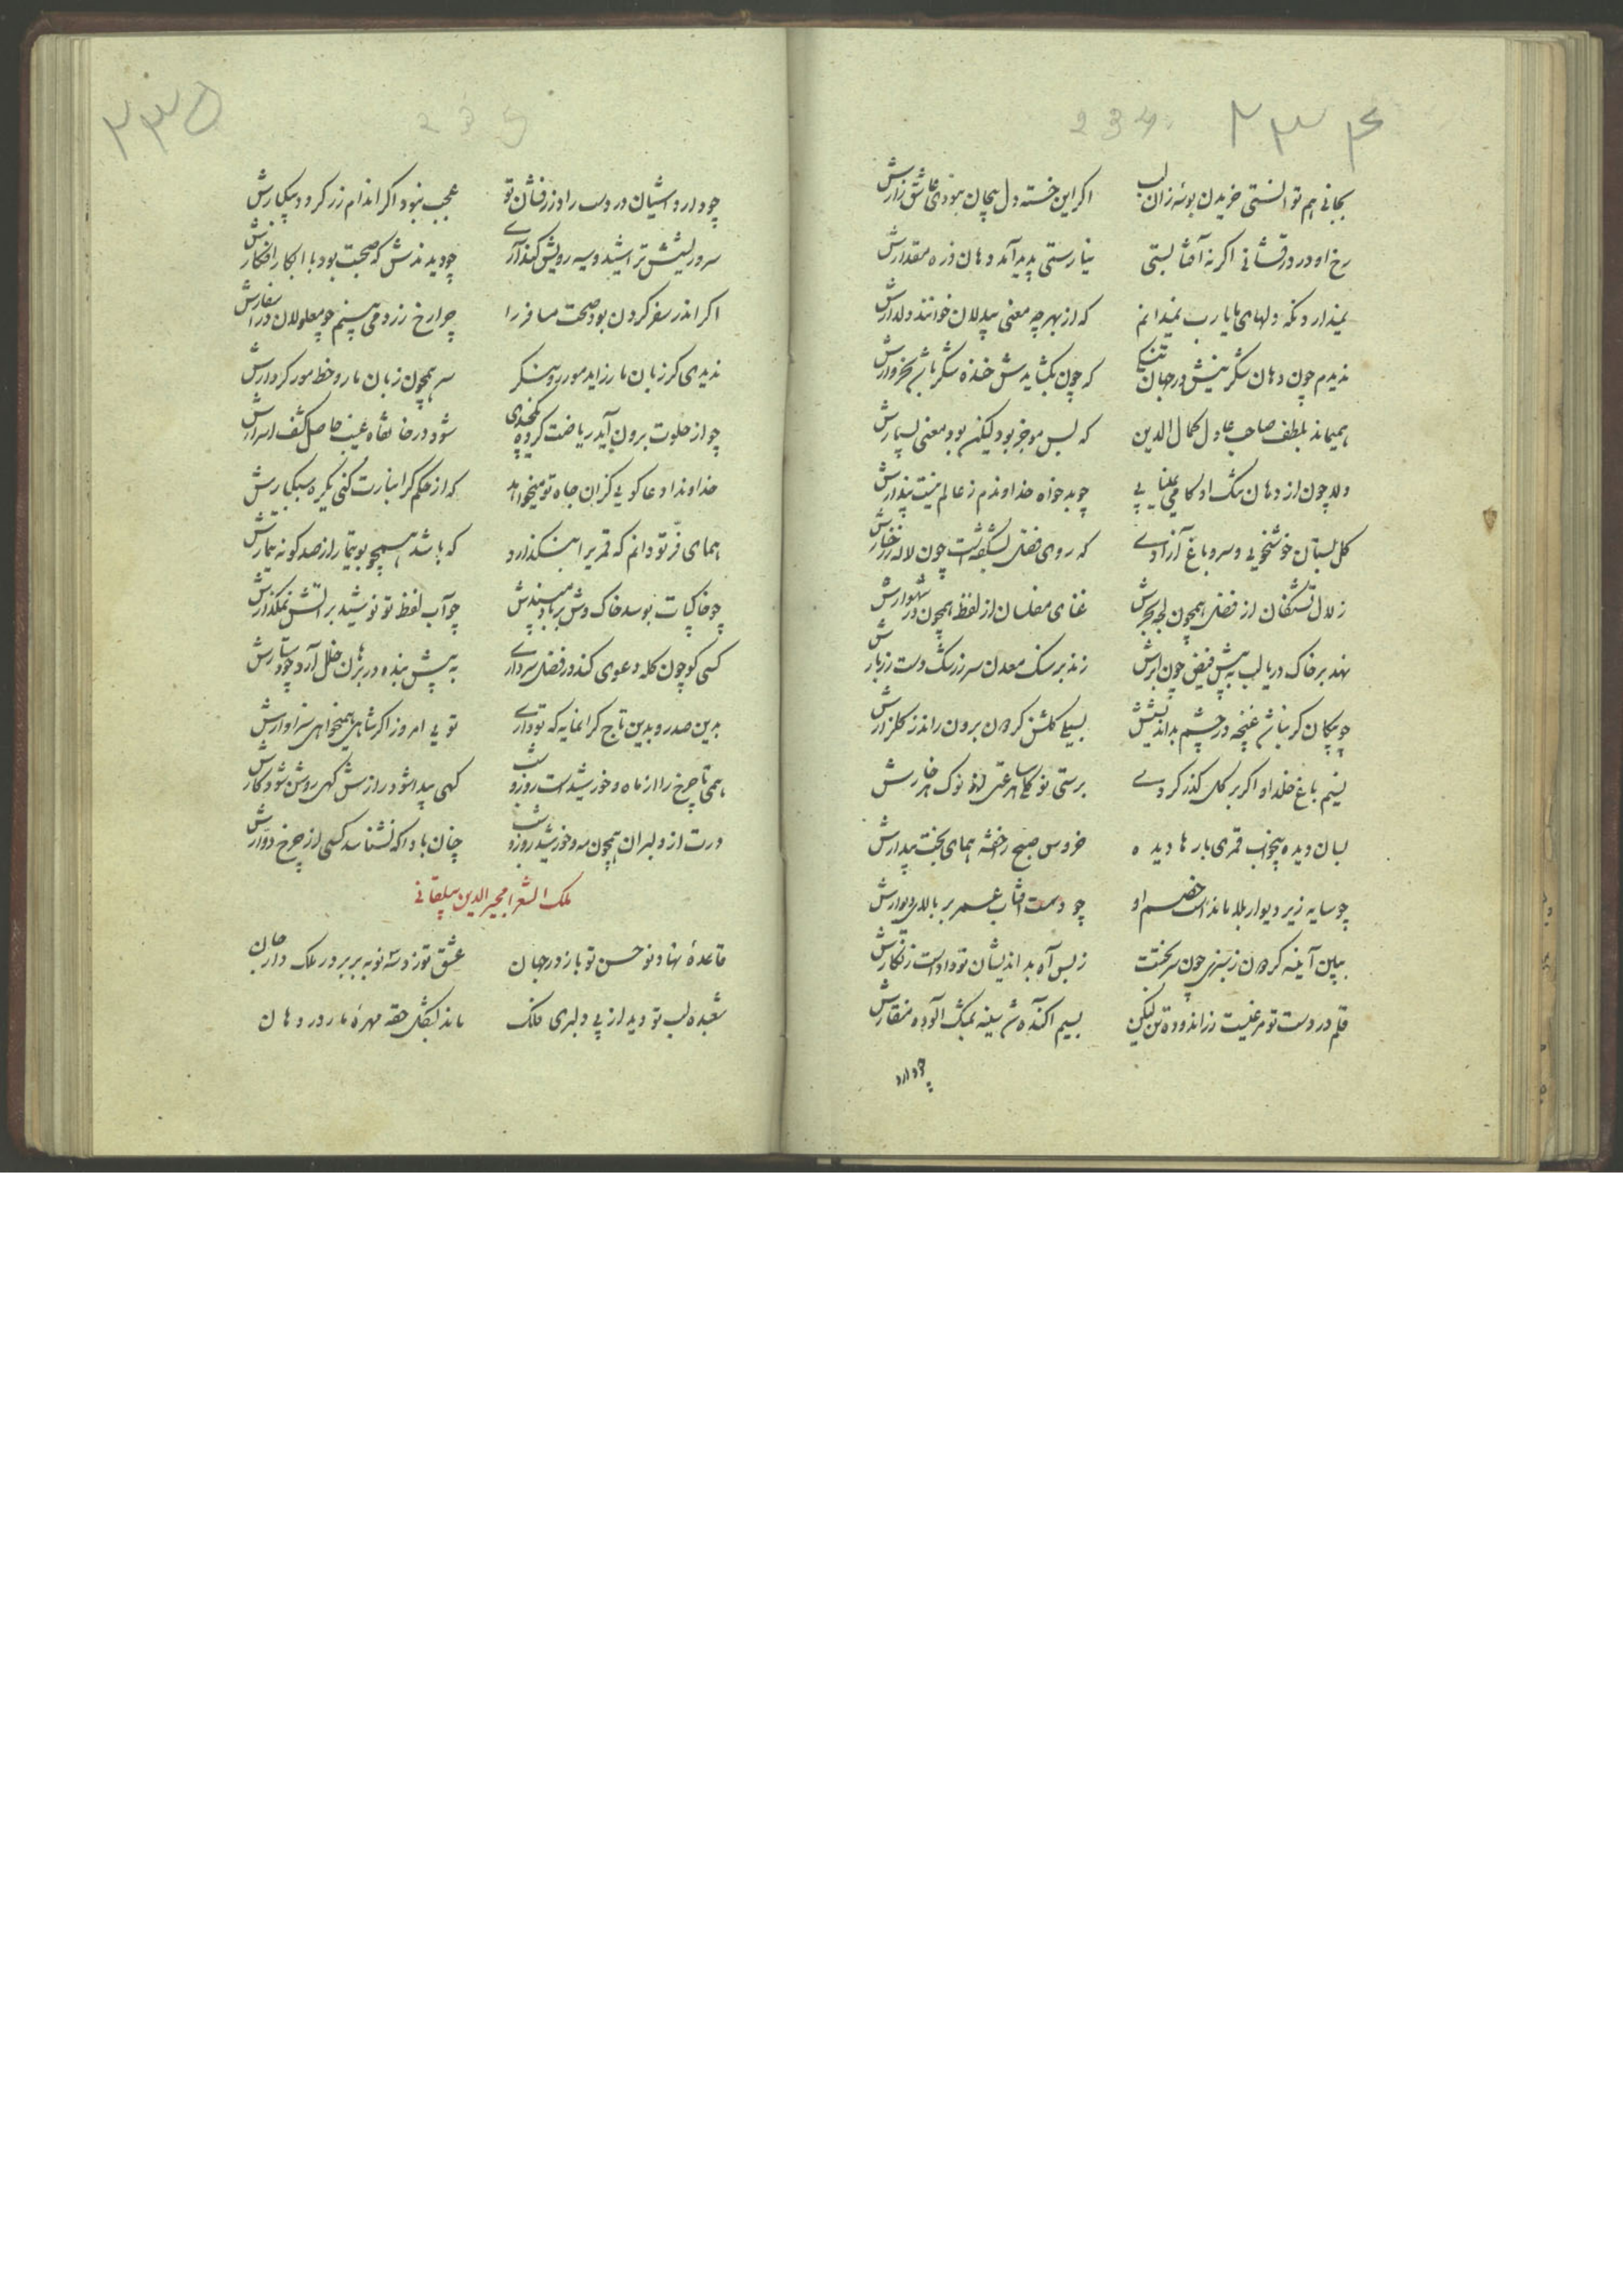 ۲۳۴
234
بجانی هم توانستی خریدن بوسهٔ زان لب اکر این خسته دل بیجان نبودی عاشق زارش
رخ او در درفشانی اکر نه آفتابستی نیارستی پدید آمد دهان ذره مقدارش
نمیدارد نکه دلهای ما یا رب نمیدانم که از بهر چه معنی بیدلان خوانند دلدارش
ندیدم چون دهان شکرینش در جهان تنکی که چون بکشایدش خنده شکر باشد بخروارش
همیماند بلطف صاحب عادل کمال الدین که بس موجز بود لیکن بود معنی بسیارش
دلا چون از دهان تنک او کامی نمییابی چو بدخواه خداوندم ز عالم نیست پندارش
کل بستان خوشخویی و سرو باغ آزادی که روی فضل بشکفتست چون لاله ز رخسارش
زلال تشنکان از فضل همچون لجه بحرش غنای مفلسان از لفظ همچون در شهوارش
نهد بر خاک دریا لب به پیش فیض چون ابرش زند بر سنک معدن سر ز رشک دست زربارش
چو پیکان کر نباشد غنچه در چشم بداندیشش بسیلی کلشن کردون برون راند ز کلزارش
نسیم باغ خلد او اکر بر کل کذر کردی برستی نو کلی هر ساعتی از نوک هر خارش
بسان دیده بیخواب قمری بارها دیده خروس صبح رخشه همای بخت بیدارش
چو سایه زیر دیوار بلا ماندست خصم او چو دست آفتاب عمر بر بالای دیوارش
ببین آیینه کردون ز سبزی چون سر تختت ز بس آه بداندیشان تو دادست زنکارش
قلم در دست تو مرغیست زر اندوده تن لیکن بسیم آکنده شد سینه بمشک آلوده منقارش
چو دارد
۲۳۵
235
چو دارد آشیان در دست راد زرفشان تو عجب نبود اکر اندام زر کردد بیکبارش
سر و ریشش تراشید و سیه رویش کند آری چو دیدندش که صحبت بود با ابکار افکارش
اکر اندر سفر کردن بود صحت مسافر را چرا رخ زرد می بینم چو معلولان در اسفارش
ندیدی کر زبان مار زاید مور رو بنکر سر همچون زبان مار و خط مور کردارش
چو از خلوت برون آید ریاضت کرده پنجه‌ی شود در خانقاه غیب حاصل کشف اسرارش
خداوندا دعا کویی کزان جاه تو میخواهد که از حکم کرانبارت کنی یکره سبکبارش
همای فر تو دانم که قمری را بنکذارد که باشد همچو بوتیمار از صد کونه تیمارش
چو خاک پات بوسد خاک وش بر باد مپسندش چو آب لفظ تو نوشید بر آتش بمکذارش
کسی کو چون کله دعوی کند در فضل سرداری به پیش بنده در برهان خلل آرد چو دستارش
بدین صدر و بدین تاج کرانمایه که تو داری تویی امروز اکر شاهی همیخواهی سزاوارش
همی تا چرخ را از ماه و خورشیدست روز و شب کهی پیدا شود رازش کهی روشن شود کارش
درت از دلبران همچون مه و خورشید روز و شب چنان بادا که نشناسد کسی از چرخ دوارش
ملک الشعرا مجیر الدین بیلقانی
قاعدهٔ نهاد نو حسن تو باز در جهان عشق تو زد سه نوبه بر در ملک دار جان
شعبدهٔ لب تو دید از پی دلبری فلک ماند بشکل حقه مهرهٔ مار در دهان